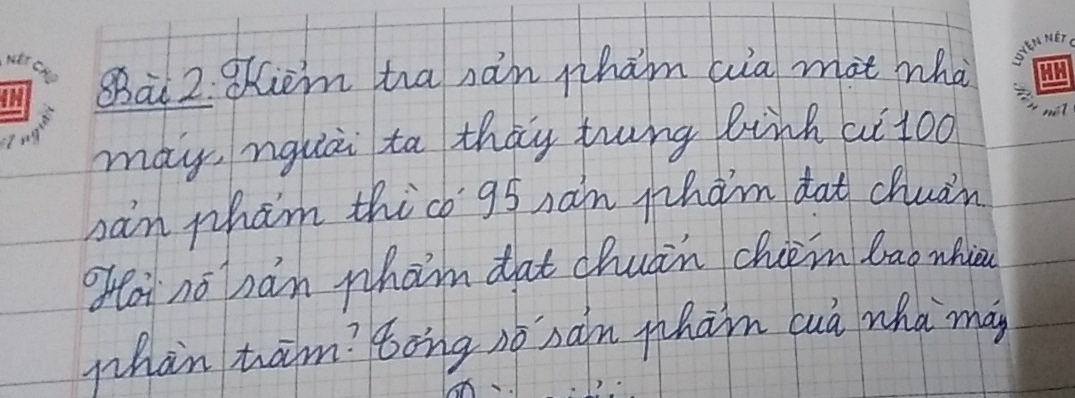 Bài 2: Kiểm tra sản phẩm của một nhà
máy, người ta thấy trung bình cứ 100
sản phẩm thì có 95 sản phẩm đạt chuẩn.
Hỏi số sản phẩm đạt chuẩn chiếm bao nhiêu
phần trăm? Tổng số sản phẩm của nhà máy
NÉT CHỮ
HH
LUYỆN NÉT C
HH